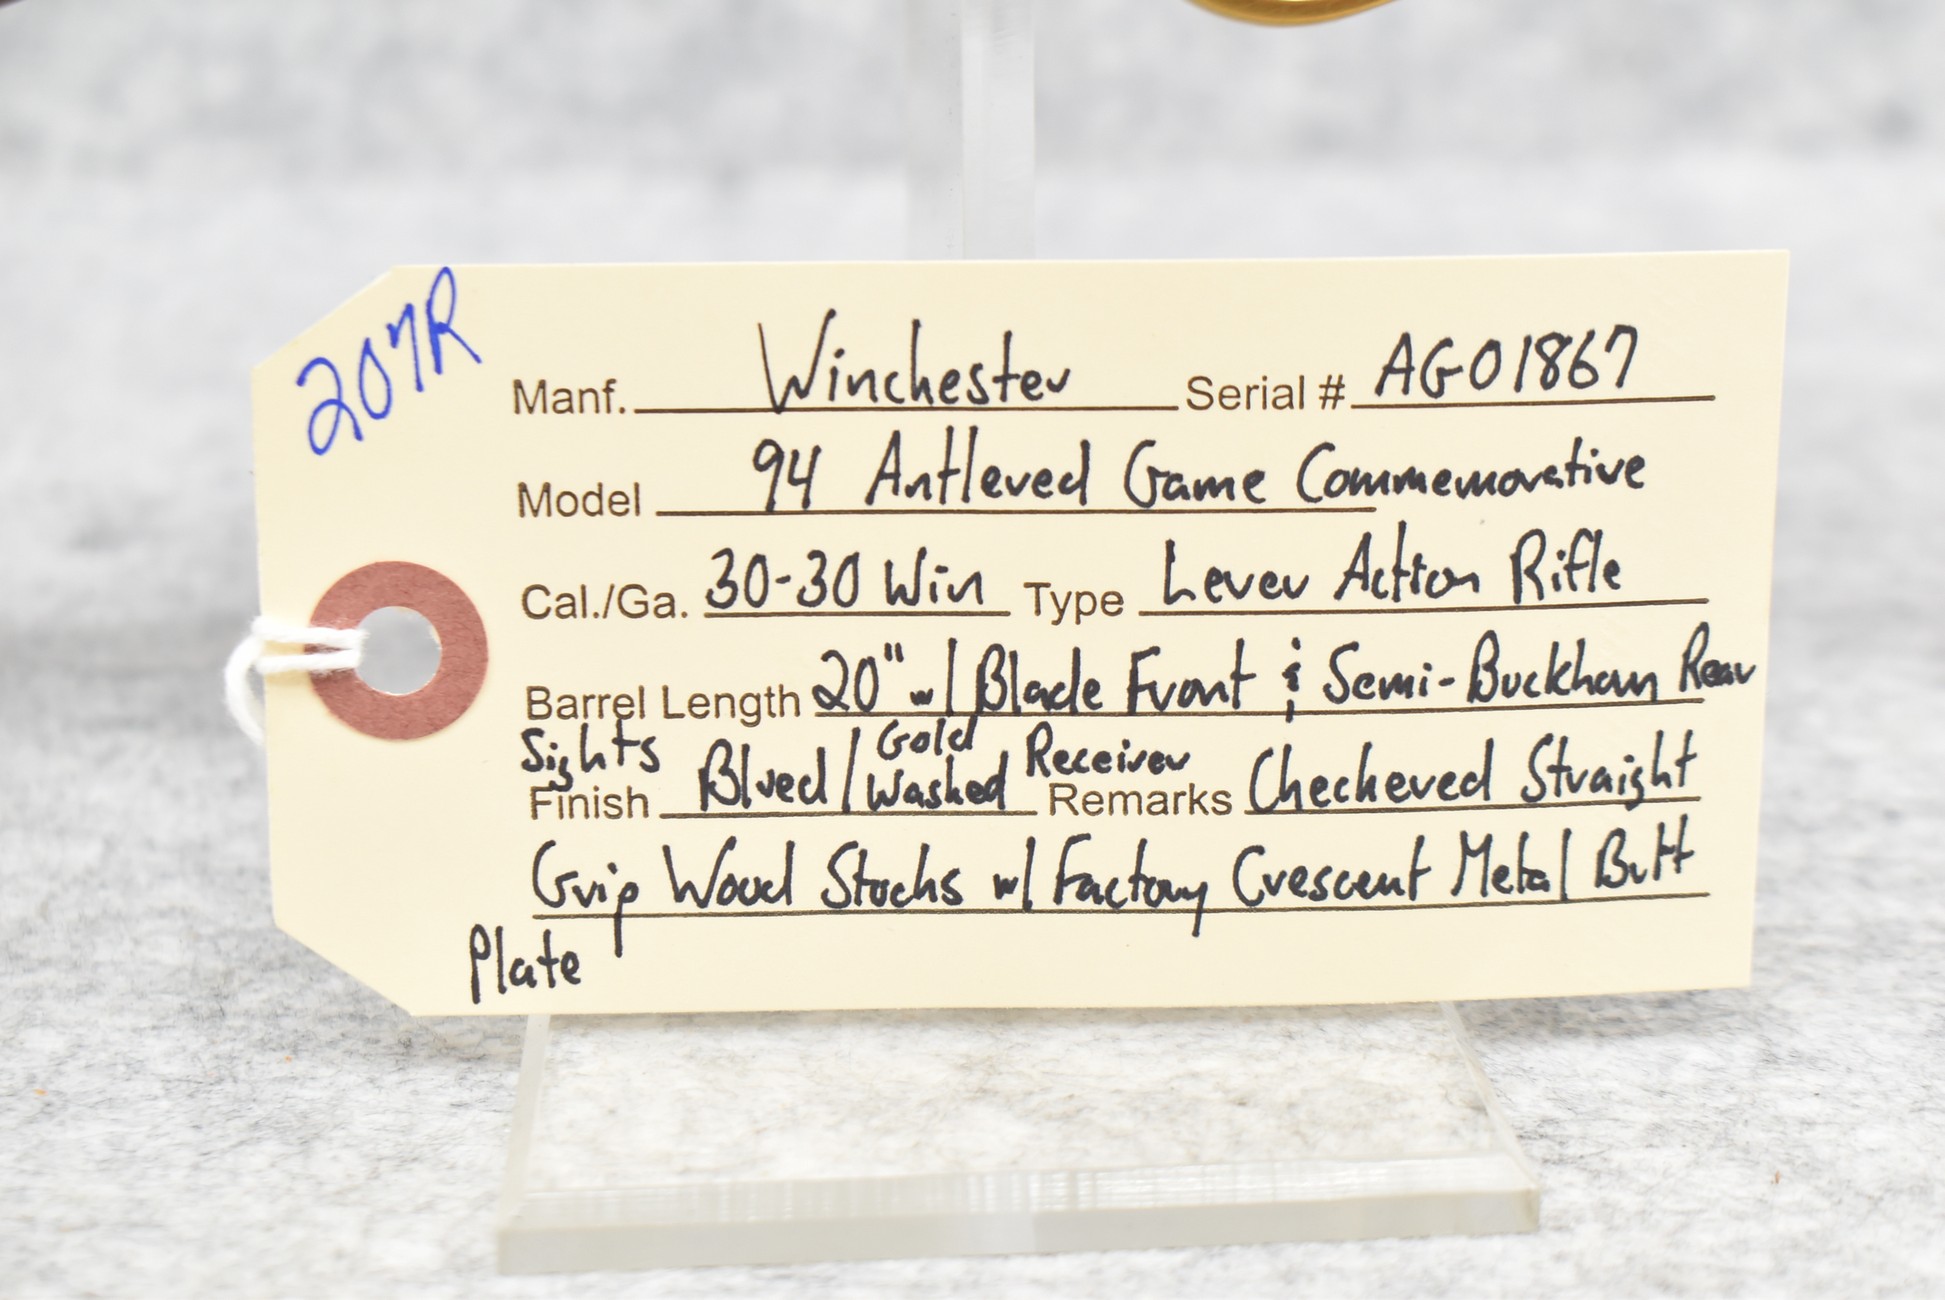 207R
Manf. Winchester Serial # AG01867
Model 94 Antlered Game Commemorative
Cal./Ga. 30-30 Win Type Lever Action Rifle
Barrel Length 20" w/ Blade Front & Semi-Buckhorn Rear
Sights
Finish Blued/Gold Washed Receiver Remarks Checkered Straight
Grip Wood Stocks w/ Factory Crescent Metal Butt
Plate